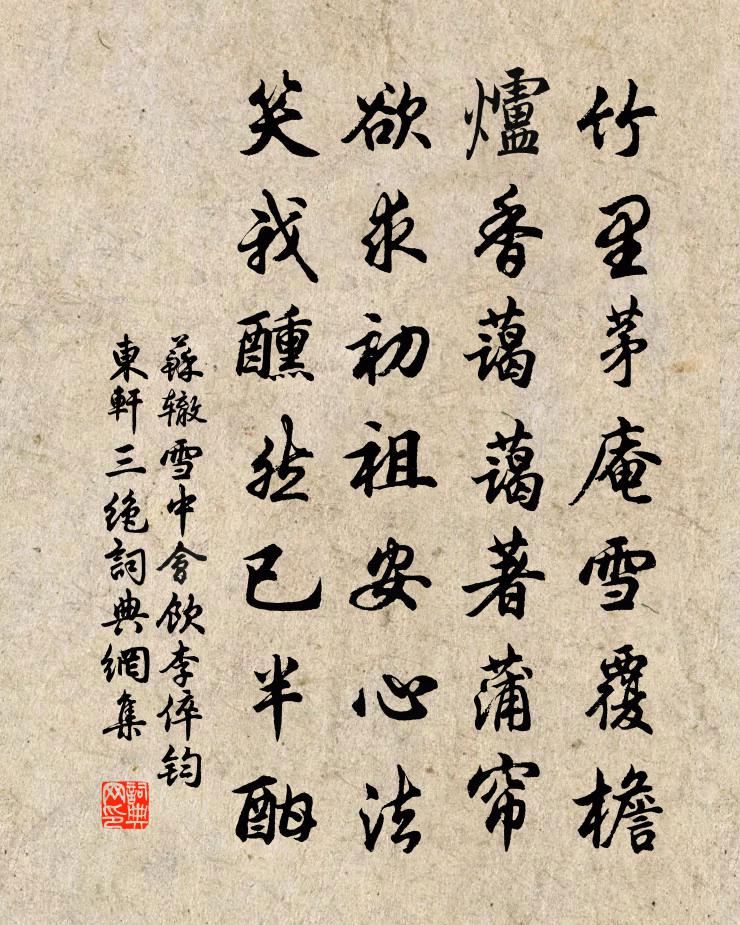 竹里茅庵雪覆檐
爐香藹藹著蒲帘
欲求初祖安心法
笑我醺然已半酣
蘇辙雪中會飲李倅钧
東軒三絶詞典網集
詞典网印